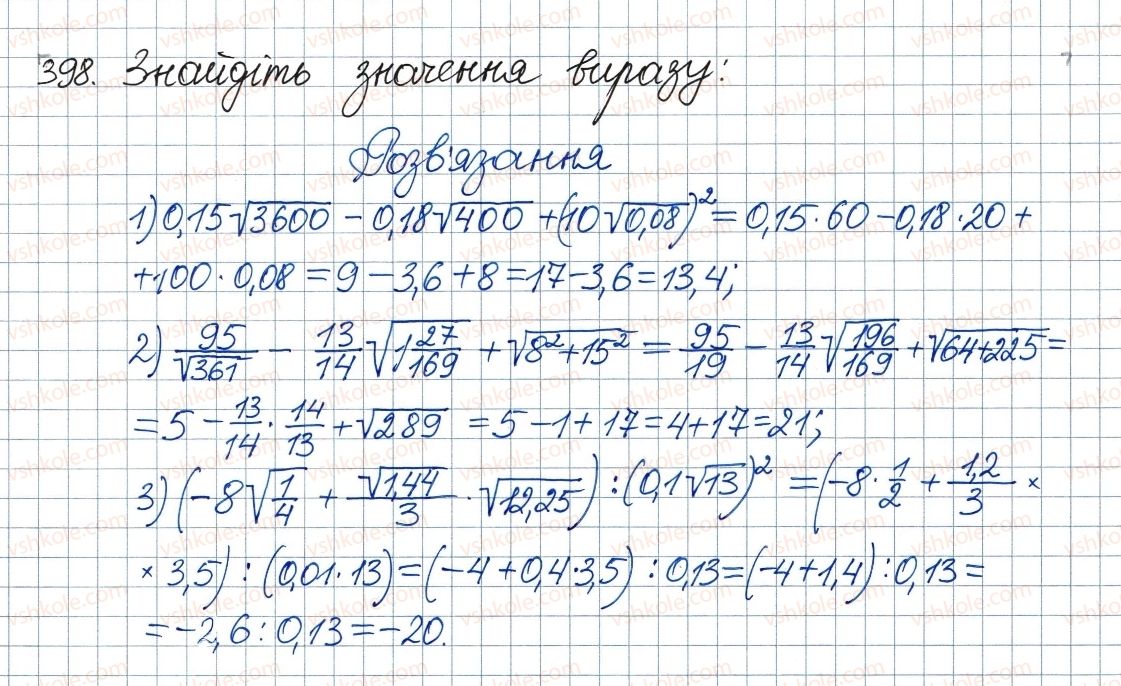 398. Знайдіть значення виразу:
Розв'язання
1) 0,15√3600 − 0,18√400 + (10√0,08)² = 0,15·60 − 0,18·20 +
+ 100·0,08 = 9 − 3,6 + 8 = 17 − 3,6 = 13,4;
2) 95/√361 − 13/14 √(1 27/169) + √(8² + 15²) = 95/19 − 13/14 √(196/169) + √(64+225) =
= 5 − 13/14 · 14/13 + √289 = 5 − 1 + 17 = 4 + 17 = 21;
3) (−8√(1/4) + √1,44/3 · √12,25) : (0,1√13)² = (−8 · 1/2 + 1,2/3 ×
× 3,5) : (0,01·13) = (−4 + 0,4·3,5) : 0,13 = (−4 + 1,4) : 0,13 =
= −2,6 : 0,13 = −20.